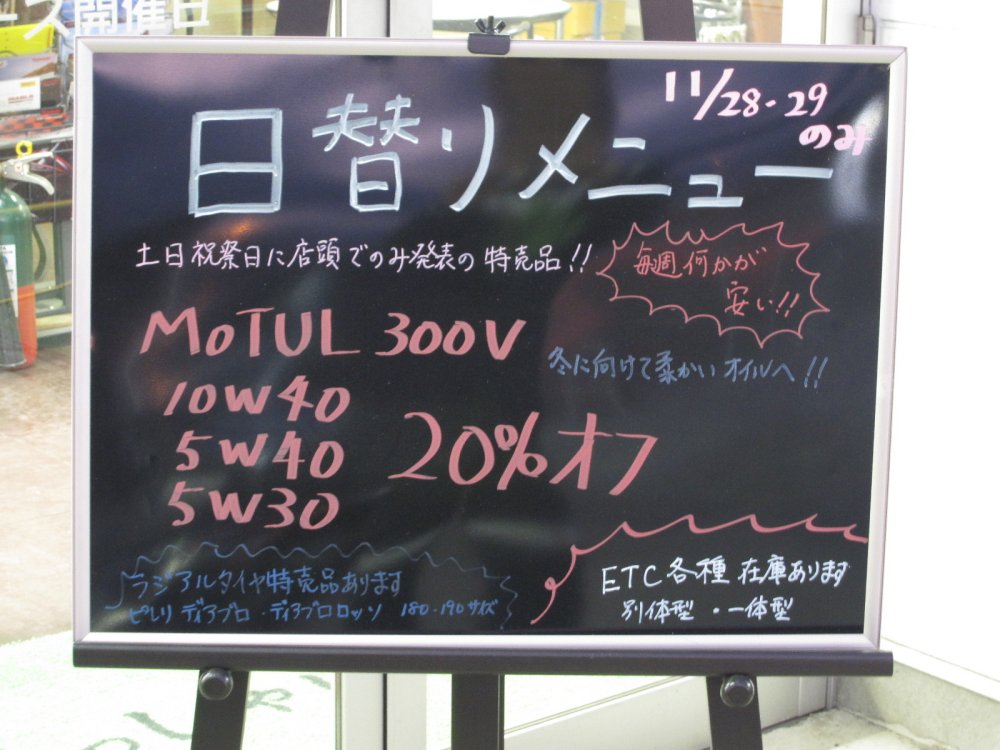 ース開催日
11/28・29
のみ
日替りメニュー
土日祝祭日に店頭でのみ発表の特売品!!
毎週何かが
安い!!
MoTUL 300V
冬に向けて柔かいオイルへ!!
10W40
5W40
5W30
20%オフ
ラジアルタイヤ特売品あります
ピレリ ディアブロ・ディアブロロッソ 180・190サイズ
ETC各種在庫あります
別体型・一体型